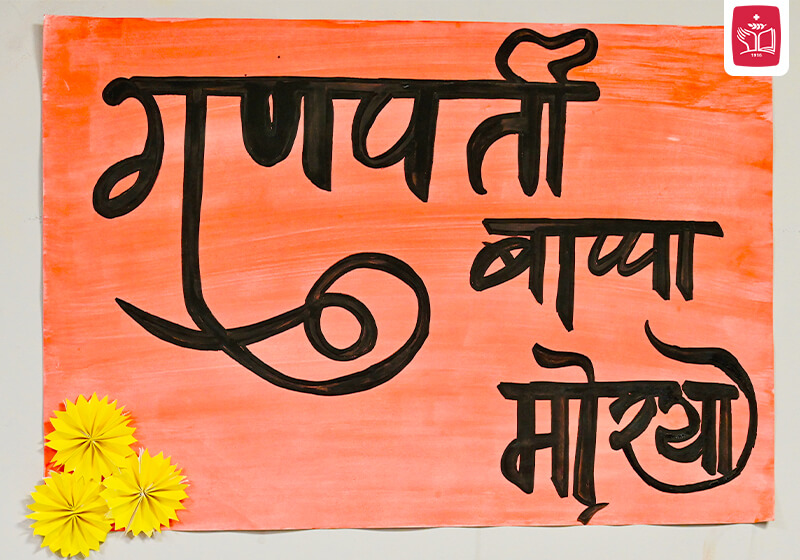 गणपती
बाप्पा
मोरया